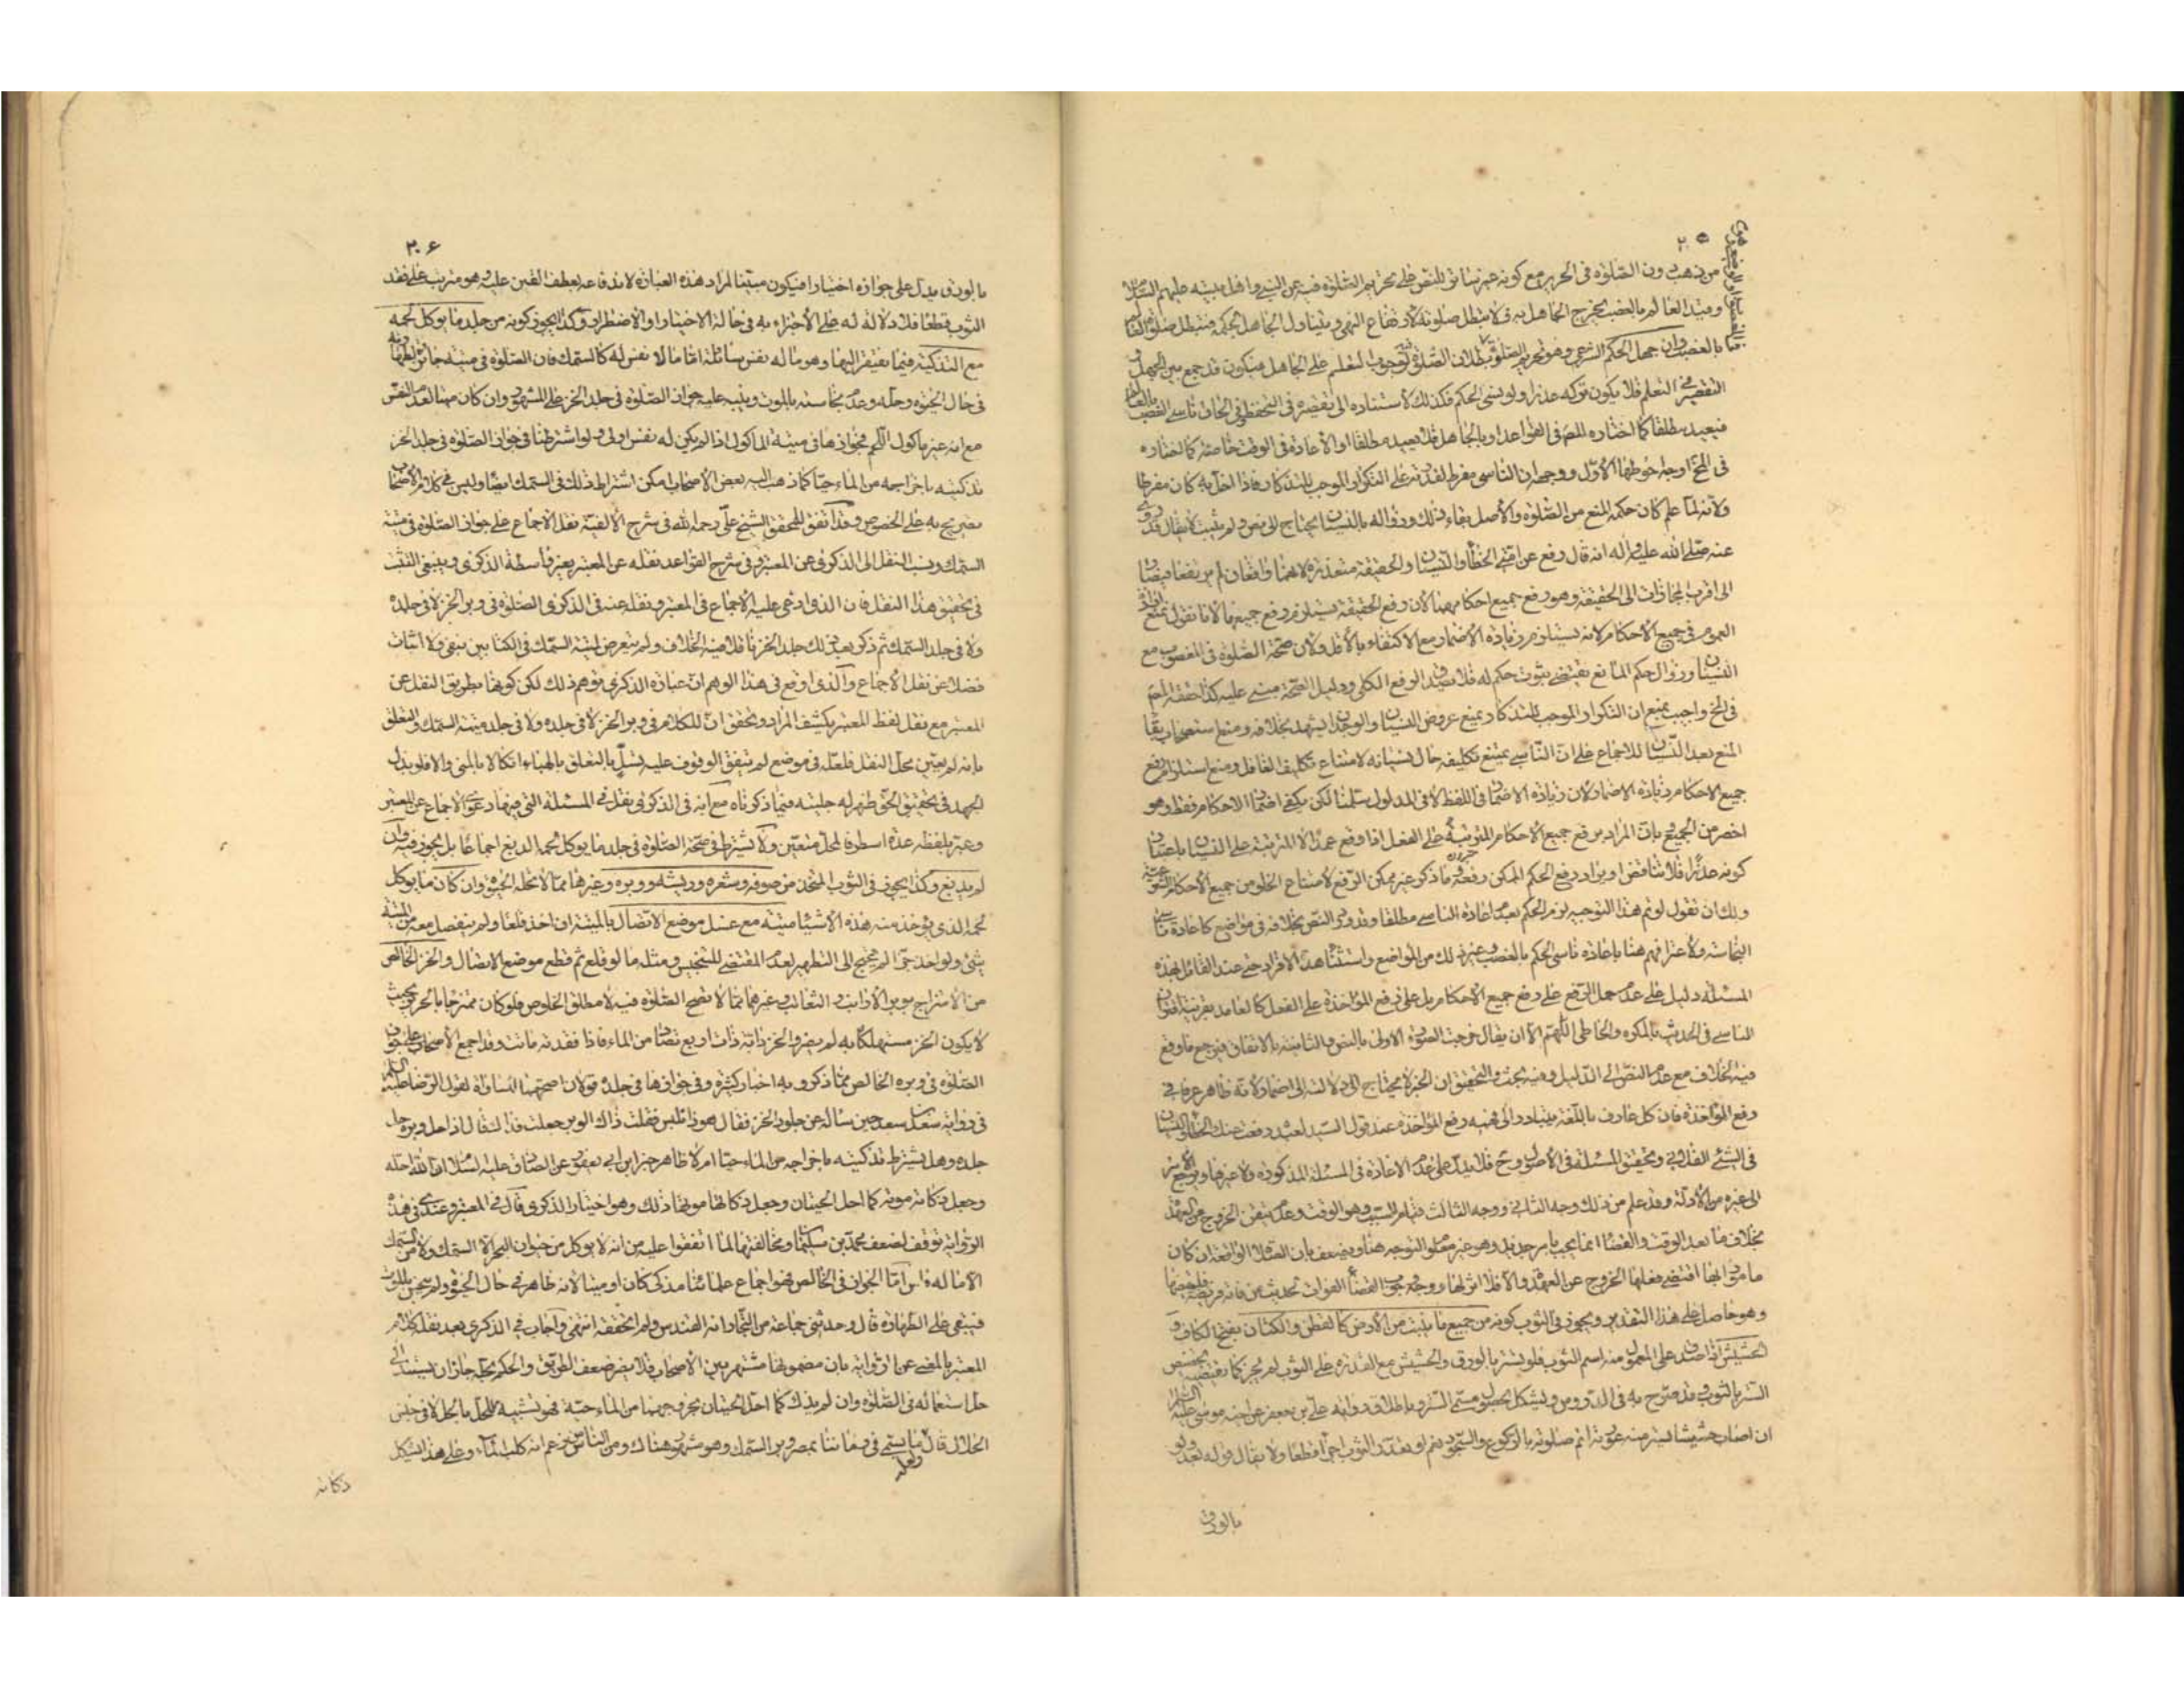 ٢٠٥
من ذهب دون الصلوة في الحرير مع كونه غير ساتر للنص على تحريم الصلوة فيه عن النبي واهل بيته عليهم السلام
وقيد العالم بالغصب يخرج الجاهل به فلا تبطل صلوته لارتفاع النهي ويتناول الجاهل بحكمه فتبطل صلوة العالم
بالغصب وان جهل الحكم الشرعي وهو تحريم الصلوة بطلان الصلوة لوجوب التعلم على الجاهل فيكون قد جمع بين الجهل و
التقصير في التعلم فلا يكون تركه عذرا ولو نسي الحكم فكذلك لاستناده الى تقصيره في التحفظ وفي الحاق ناسي الغصب بالعالم
فيعيد مطلقا كما اختاره المص في القواعد او بالجاهل فلا يعيد مطلقا او الاعادة في الوقت خاصة كما اختاره
في المخ اوجه احوطها الاول ووجهه ان الناسي مفرط لقدرته على التكرار الموجب للتذكار فاذا اخل به كان مفرطا
ولانه لما علم كان حكمه المنع من الصلوة والاصل بقاء ذلك وزواله بالنسيان يحتاج الى نص ولم يثبت لا يقال قد روى
عنه صلى الله عليه واله انه قال رفع عن امتي الخطأ والنسيان والحقيقة متعذرة لانهما واقعان لم يرتفعا فيصار
الى اقرب المجازات الى الحقيقة وهو رفع جميع احكامهما لان رفع الحقيقة يستلزم رفع جميعها لانا نقول نمنع ارادة
العموم في جميع الاحكام لانه يستلزم زيادة الاضمار مع الاكتفاء بالاقل ولان صحة الصلوة في المغصوب مع
النسيان وزوال حكم المانع يقتضي ثبوت حكم له فلا يصدق الرفع الكلي ودليل الصحة مبني عليه كذا حققه المص
في المخ واجيب بمنع ان التكرار الموجب للتذكار يمنع عروض النسيان والوجدان يشهد بخلافه ومنع استصحاب بقاء
المنع بعد النسيان للاجماع على ان الناسي يمتنع تكليفه حال نسيانه لامتناع تكليف الغافل ومنع استلزام رفع
جميع الاحكام زيادة الاضمار لان زيادة الاضمار في اللفظ لا في المدلول سلمنا لكن يكفي اضمار الاحكام فقط وهو
اخصر من الجميع بان المراد برفع جميع الاحكام المترتبة على الفعل اذا وقع عمدا لا المترتبة على النسيان باعتبار
كونه عذرا فلا تناقض او يراد رفع الحكم الممكن رفعه وما ذكر غير ممكن الرفع لامتناع الخلو من جميع الاحكام الشرعية
ولك ان تقول لو تم هذا التوجيه لزم الحكم بعدم اعادة الناسي مطلقا وقد ورد النص بخلافه في مواضع كاعادة ناسي
النجاسة ولاعترافهم هنا باعادة ناسي الحكم بالغصب وغير ذلك من المواضع واستثناء هذه الافراد حتى عند القائل بهذه
المسئلة دليل على عدم حمل الرفع على رفع جميع الاحكام بل على رفع المؤاخذة على الفعل كالعامد بقرينة اقتران
الناسي في الحديث بالمكره والخاطي اللهم الا ان يقال خرجت الصورة الاولى بالنص والثانية بالاتفاق فيرجع ما وقع
فيه الخلاف مع عدم النص الى الدليل وفيه بحث والتحقيق ان الخبر لا يحتاج الى دلالته الى اضمار لانه ظاهر عرفا في
رفع المؤاخذة فان كل عارف باللغة يتبادر الى فهمه رفع المؤاخذة عند قول السيد لعبده رفعت عنك الخطأ والنسيان
في الشئ الفلاني وتحقيق المسئلة في الاصول وح فلا يدل على عدم الاعادة في المسئلة المذكورة ولا غيرها ويرجع الامر
الى غيره من الادلة وقد علم من ذلك وجه الثاني ووجه الثالث قيام السبب وهو الوقت وعدم تيقن الخروج عن العهدة
بخلاف ما بعد الوقت والقضاء انما يجب بامر جديد وهو غير معلوم التوجه هنا ويضعف بان الصلوة الواقعة ان كان
مامورا بها اقتضى فعلها الخروج عن العهدة والا فلا اثر لها ووجه وجوب القضاء الفوات لحديث من فاته فريضة فليقضها
وهو حاصل على هذا التقدير ويجوز في الثوب كونه من جميع ما ينبت من الارض كالقطن والكتان بفتح الكاف و
الحشيش اذا صدق على المعمول منه اسم الثوب فلو تستر بالورق والحشيش مع القدرة على الثوب لم يجز كما يقتضيه تخصيص
الستر بالثوب وقد صرح به في الدروس ويشكل بحصول مسمى الستر وباطلاق رواية علي بن جعفر عن اخيه موسى عليه السلام
ان اصاب حشيشا يستر منه عورته اتم صلوته بالركوع والسجود نعم لو تعذر الثوب اجزأ قطعا ولا يقال قوله بعد ولو
بالورق
٢٠۶
ما لورق يدل على جوازه اختيارا فيكون مبينا لمراد هذه العبارة لاندفاعه بعطف الطين عليه وهو مترتب على فقد
الثوب قطعا فلا دلالة له على الاجزاء به في حالة الاختيار او الاضطرار وكذا يجوز كونه من جلد ما يوكل لحمه
مع التذكية فيما يفتقر اليها وهو ما له نفس سائلة اما ما لا نفس له كالسمك فان الصلوة في ميتته جائزة لطهارته
في حال الحيوة وحله وعدم نجاسته بالموت وينبه عليه جواز الصلوة في جلد الخز على المشهور وان كان ميتا لعدم النفس
مع انه غير ماكول اللحم فجوازها في ميتة الماكول اذا لم يكن له نفس اولى ولو اشترطنا في جواز الصلوة في جلد الخز
تذكيته باخراجه من الماء حيا كما ذهب اليه بعض الاصحاب امكن اشتراط ذلك في السمك ايضا وليس في كلام الاصحاب
تصريح به على الخصوص وقد اتفق للمحقق الشيخ علي رحمه الله في شرح الالفية نقل الاجماع على جواز الصلوة في ميتة
السمك ونسب النقل الى الذكرى عن المعتبر وفي شرح القواعد نقله عن المعتبر بغير واسطة الذكرى وينبغي التثبت
في تحقيق هذا النقل فان الذي ادعى عليه الاجماع في المعتبر ونقله عنه في الذكرى الصلوة في وبر الخز لا في جلده
ولا في جلد السمك ثم ذكر بعد ذلك جلد الخز ناقلا فيه الخلاف ولم يتعرض لميتة السمك في الكتابين بنفي ولا اثبات
فضلا عن نقل الاجماع والذي اوقع في هذا الوهم ان عبارة الذكرى توهم ذلك لكن كونها بطريق النقل عن
المعتبر مع نقل لفظ المعتبر يكشف المراد ويحقق ان الكلام في وبر الخز لا في جلده ولا في جلد ميتة السمك والتعلق
بانه لم يعين محل النقل فلعله في موضع لم يتفق الوقوف عليه تشبث بالتعلق بالهباء اتكالا بالمنى والا فلو بذل
الجهد في تحقيق الحق ظهر له جليته فيما ذكرناه مع انه في الذكرى نقل في المسئلة التي فيها دعوى الاجماع عن المعتبر
وعبر بلفظه عدة اسطر فالمحل متعين ولا يشترط في صحة الصلوة في جلد ما يوكل لحمه الدبغ اجماعا بل يجوز فيه وان
لم يدبغ وكذا يجوز في الثوب المتخذ من صوفه وشعره وريشه ووبره وغيرها مما لا تحله الحيوة وان كان ما يوكل
لحمه الذي يؤخذ منه هذه الاشياء ميتة مع غسل موضع الاتصال بالميتة ان اخذ قلعا ولم ينفصل معه من الميتة
شئ ولو اخذ جزا لم يحتج الى التطهير لعدم المقتضي للتنجيس ومثله ما لو قلع ثم قطع موضع الاتصال والخز الخالص
من الامتزاج بوبر الارانب والثعالب وغيرهما مما لا تصح الصلوة فيه لا مطلق الخلوص فلو كان ممتزجا بالحرير بحيث
لا يكون الخز مستهلكا به لم يضر والخز دابة ذات اربع تصاد من الماء فاذا فقدته ماتت وقد اجمع الاصحاب على جواز
الصلوة في وبره الخالص مما ذكر وبه اخبار كثيرة وفي جوازها في جلده قولان اصحهما المساواة لقول الرضا عليه السلم
في رواية سعد بن سعد حين سأله عن جلود الخز فقال هوذا نلبس فقلت ذاك الوبر جعلت فداك فقال اذا حل وبره حل
جلده وهل يشترط تذكيته باخراجه من الماء حيا ام لا ظاهر خبر ابن ابي يعفور عن الصادق عليه السلام ان الله احله
وجعل ذكاته موته كما احل الحيتان وجعل ذكاتها موتها ذلك وهو اختيار الذكرى قال في المعتبر وعندي في هذه
الرواية توقف لضعف محمد بن سليمان ومخالفتها لما اتفقوا عليه من انه لا يوكل من حيوان البحر الا السمك ولا من السمك
الا ما له فلس اما الجواز في الخالص فهو اجماع علمائنا مذكى كان او ميتا لانه طاهر في حال الحيوة ولم ينجس بالموت
فيبقى على الطهارة قال وحدثني جماعة من التجار انه القندس ولم اتحققه انتهى واجاب في الذكرى بعد نقله كلام
المعتبر بالمعنى عن الرواية بان مضمونها مشتهر بين الاصحاب فلا يضر ضعف الطريق والحكم بحله جاز ان يستند الى
حل استعماله في الصلوة وان لم يذك كما احل الحيتان بخروجها من الماء حية فهو تشبيه للحل بالحل لا في جنس
الحلال قال ولعله ما يسمى في زماننا بمصر وبر السمك وهو مشهور هناك ومن الناس من زعم انه كلب الماء وعلى هذا يشكل
ذكاته